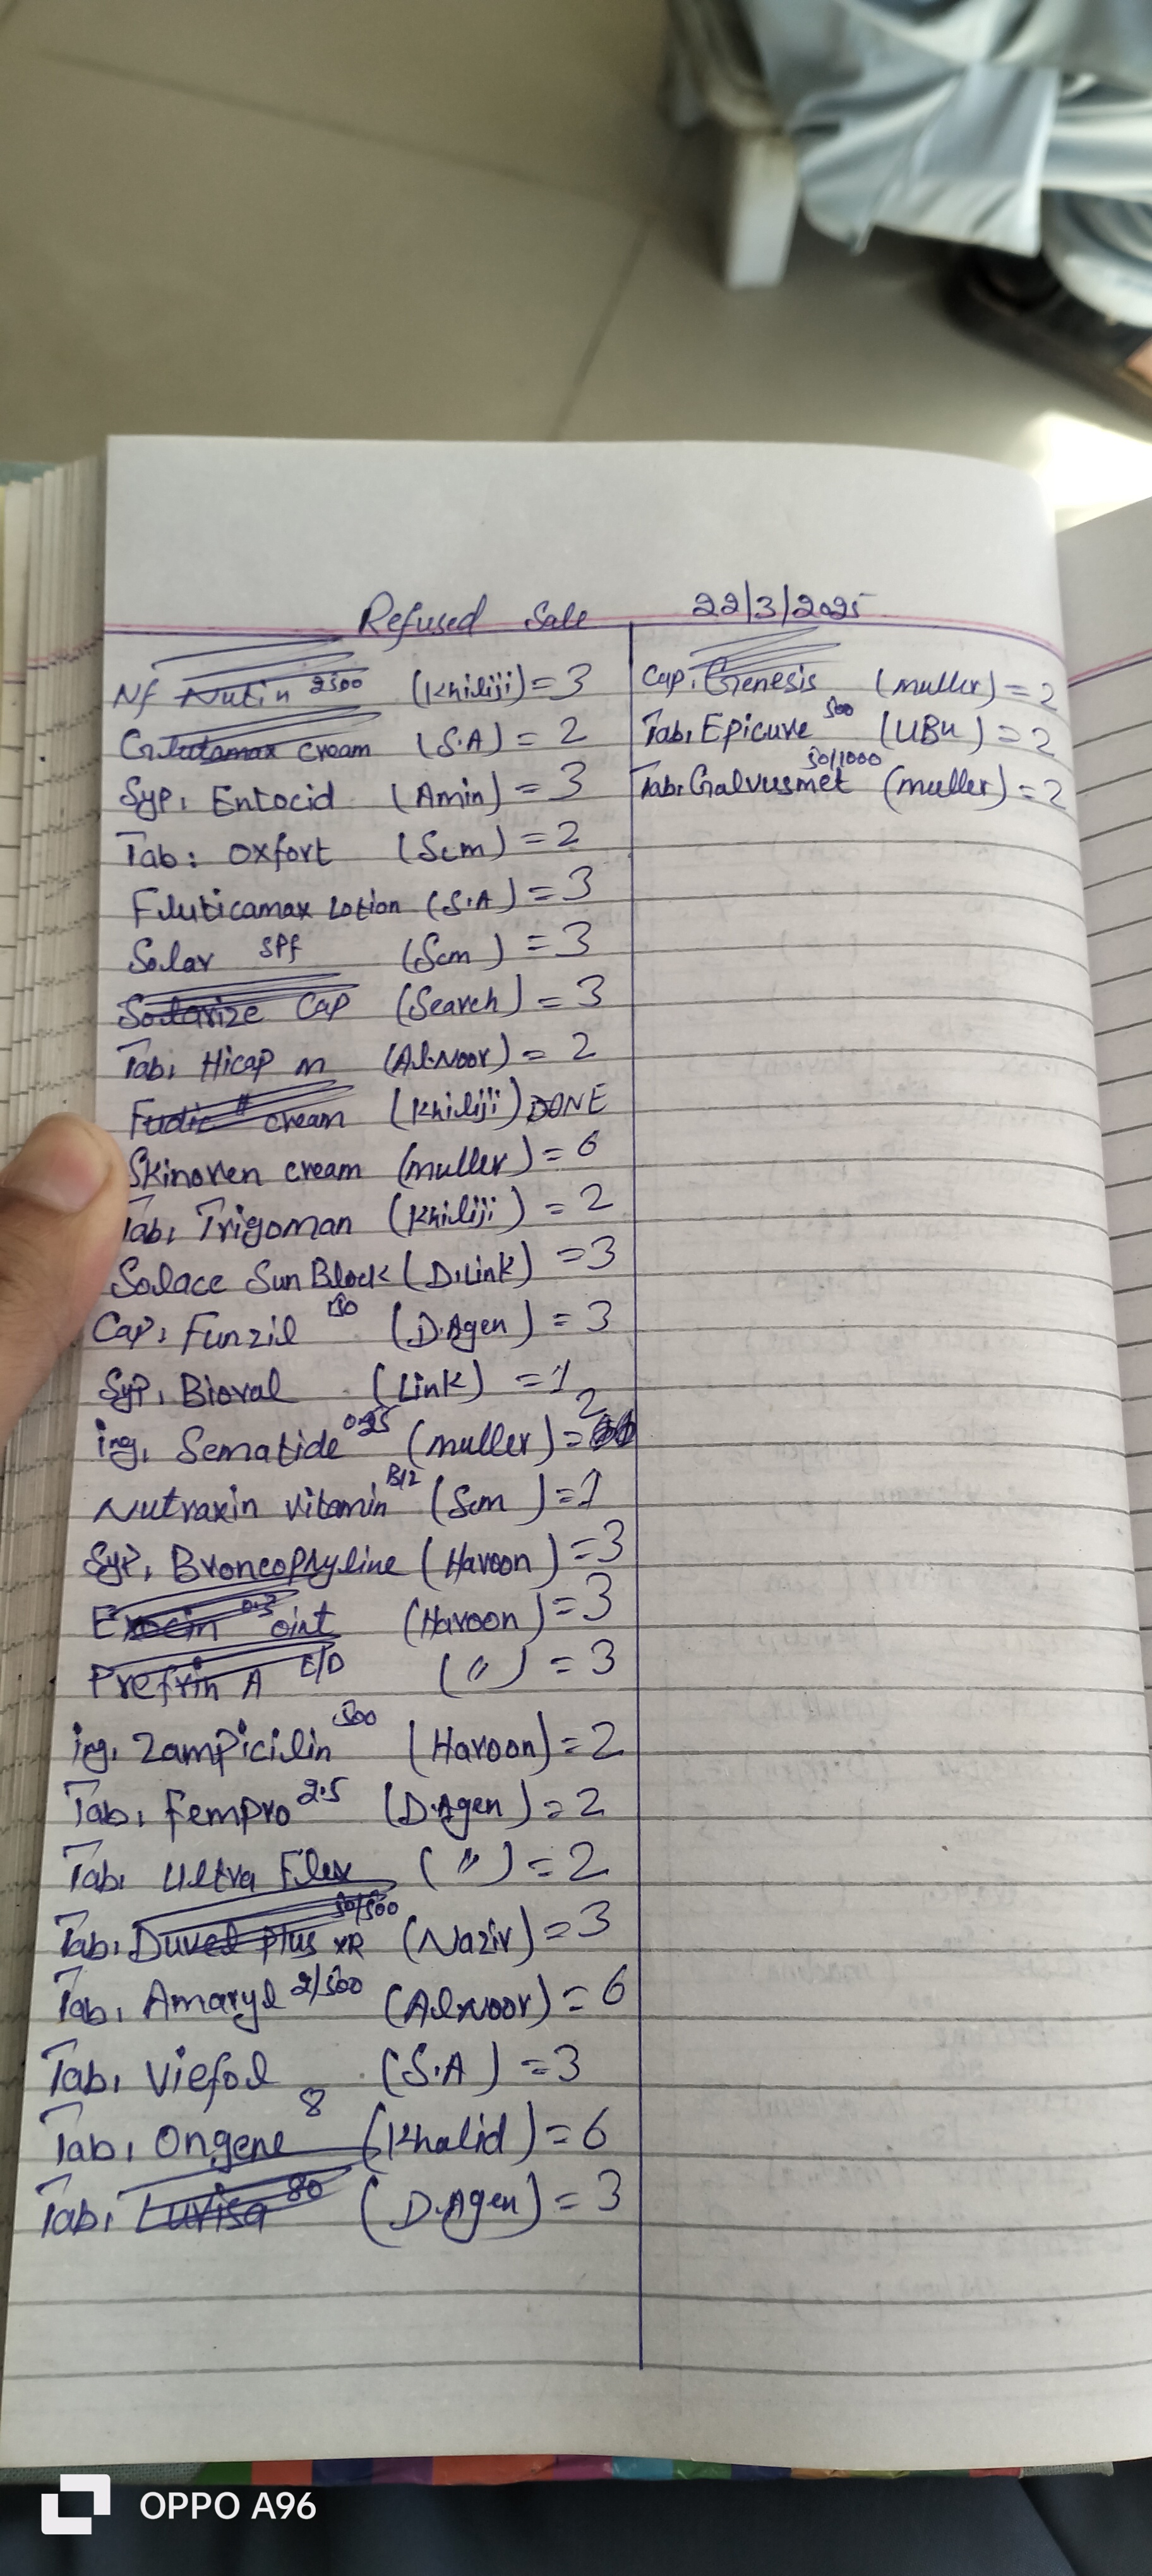 Refused Sale 22/3/2025
Nf Nutin 2500 (Khiliji) = 3
Glutamax cream (S.A) = 2
Syp, Entocid (Amin) = 3
Tab: Oxfort (Scm) = 2
Fluticamax Lotion (S.A) = 3
Solar SPf (Scm) = 3
Solarize Cap (Search) = 3
Tab, Hicap m (Al.Noor) = 2
Fudic H cream (Khiliji) DONE
Skinoren cream (muller) = 6
Tab, Trigoman (Khiliji) = 2
Solace Sun Block (D.Link) = 3
Cap, Funzil 150 (D.Agen) = 3
Syp, Bioval (Link) = 1
inj, Sematide 0.25 (muller) = 2
Nutraxin vitamin B12 (Scm) = 1
Syp, Broncophyline (Haroon) = 3
Exocin 0.3 oint (Haroon) = 3
Prefrin A E/D (〃) = 3
inj, Zampicilin 500 (Haroon) = 2
Tab, Fempro 2.5 (D.Agen) = 2
Tab, Ultra Flex (〃) = 2
Tab, Duvel Plus XR 50/500 (Nazir) = 3
Tab, Amaryl 2/500 (Al.Noor) = 6
Tab, Viefol (S.A) = 3
Tab, Ongene 8 (Khalid) = 6
Tab, Luvisa 80 (D.Agen) = 3
Cap, Genesis (muller) = 2
Tab, Epicure 500 (UBU) = 2
Tab, Galvusmet 50/1000 (muller) = 2
OPPO A96